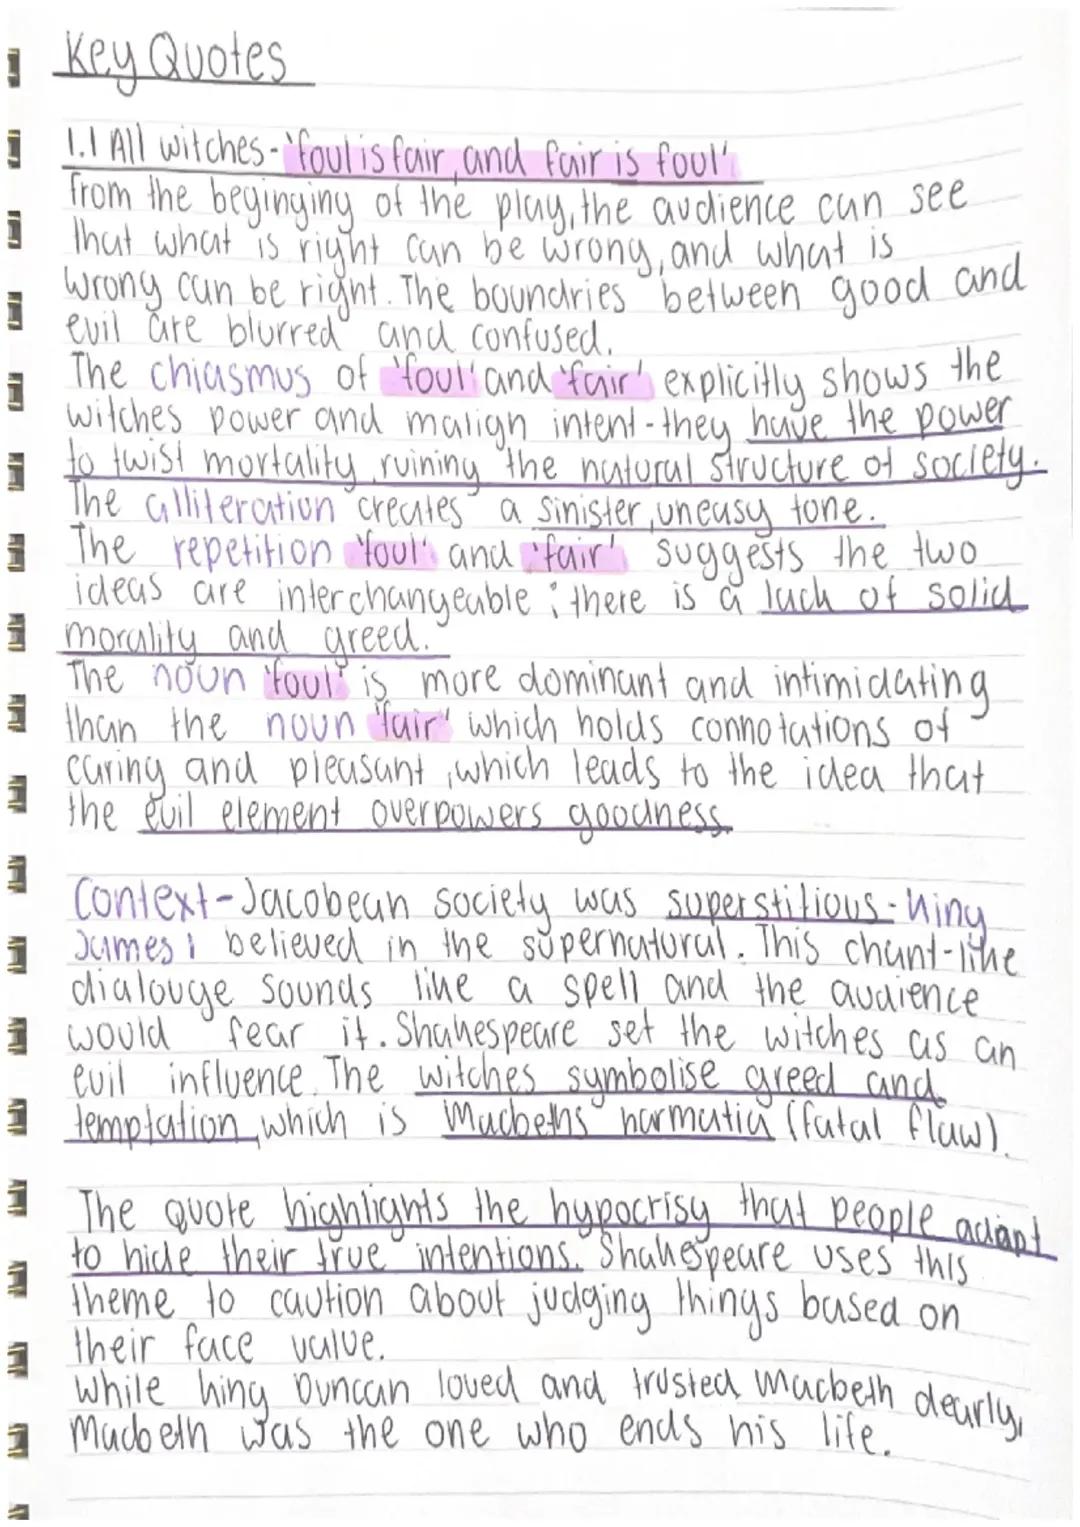 Key Quotes
1.1 All witches - 'foul is fair, and fair is foul'
from the beginging of the play, the audience can see
that what is right can be wrong, and what is
wrong can be right. The boundries between good and
evil are blurred and confused.
The chiasmus of 'foul' and 'fair' explicitly shows the
witches power and malign intent - they have the power
to twist mortality, ruining the natural structure of society.
The alliteration creates a sinister, uneasy tone.
The repetition 'foul' and 'fair' suggests the two
ideas are interchangeable; there is a lack of solid
morality and greed.
The noun 'foul' is more dominant and intimidating
than the noun 'fair' which holds connotations of
caring and pleasant, which leads to the idea that
the evil element overpowers goodness.
Context - Jacobean society was superstitious - king
James I believed in the supernatural. This chant-like
dialouge sounds like a spell and the audience
would fear it. Shakespeare set the witches as an
evil influence. The witches symbolise greed and
temptation, which is Macbeths harmatia (fatal flaw).
The quote highlights the hypocrisy that people adapt
to hide their true intentions. Shakespeare uses this
theme to caution about judging things based on
their face value.
While king Duncan loved and trusted Macbeth dearly,
Macbeth was the one who ends his life.